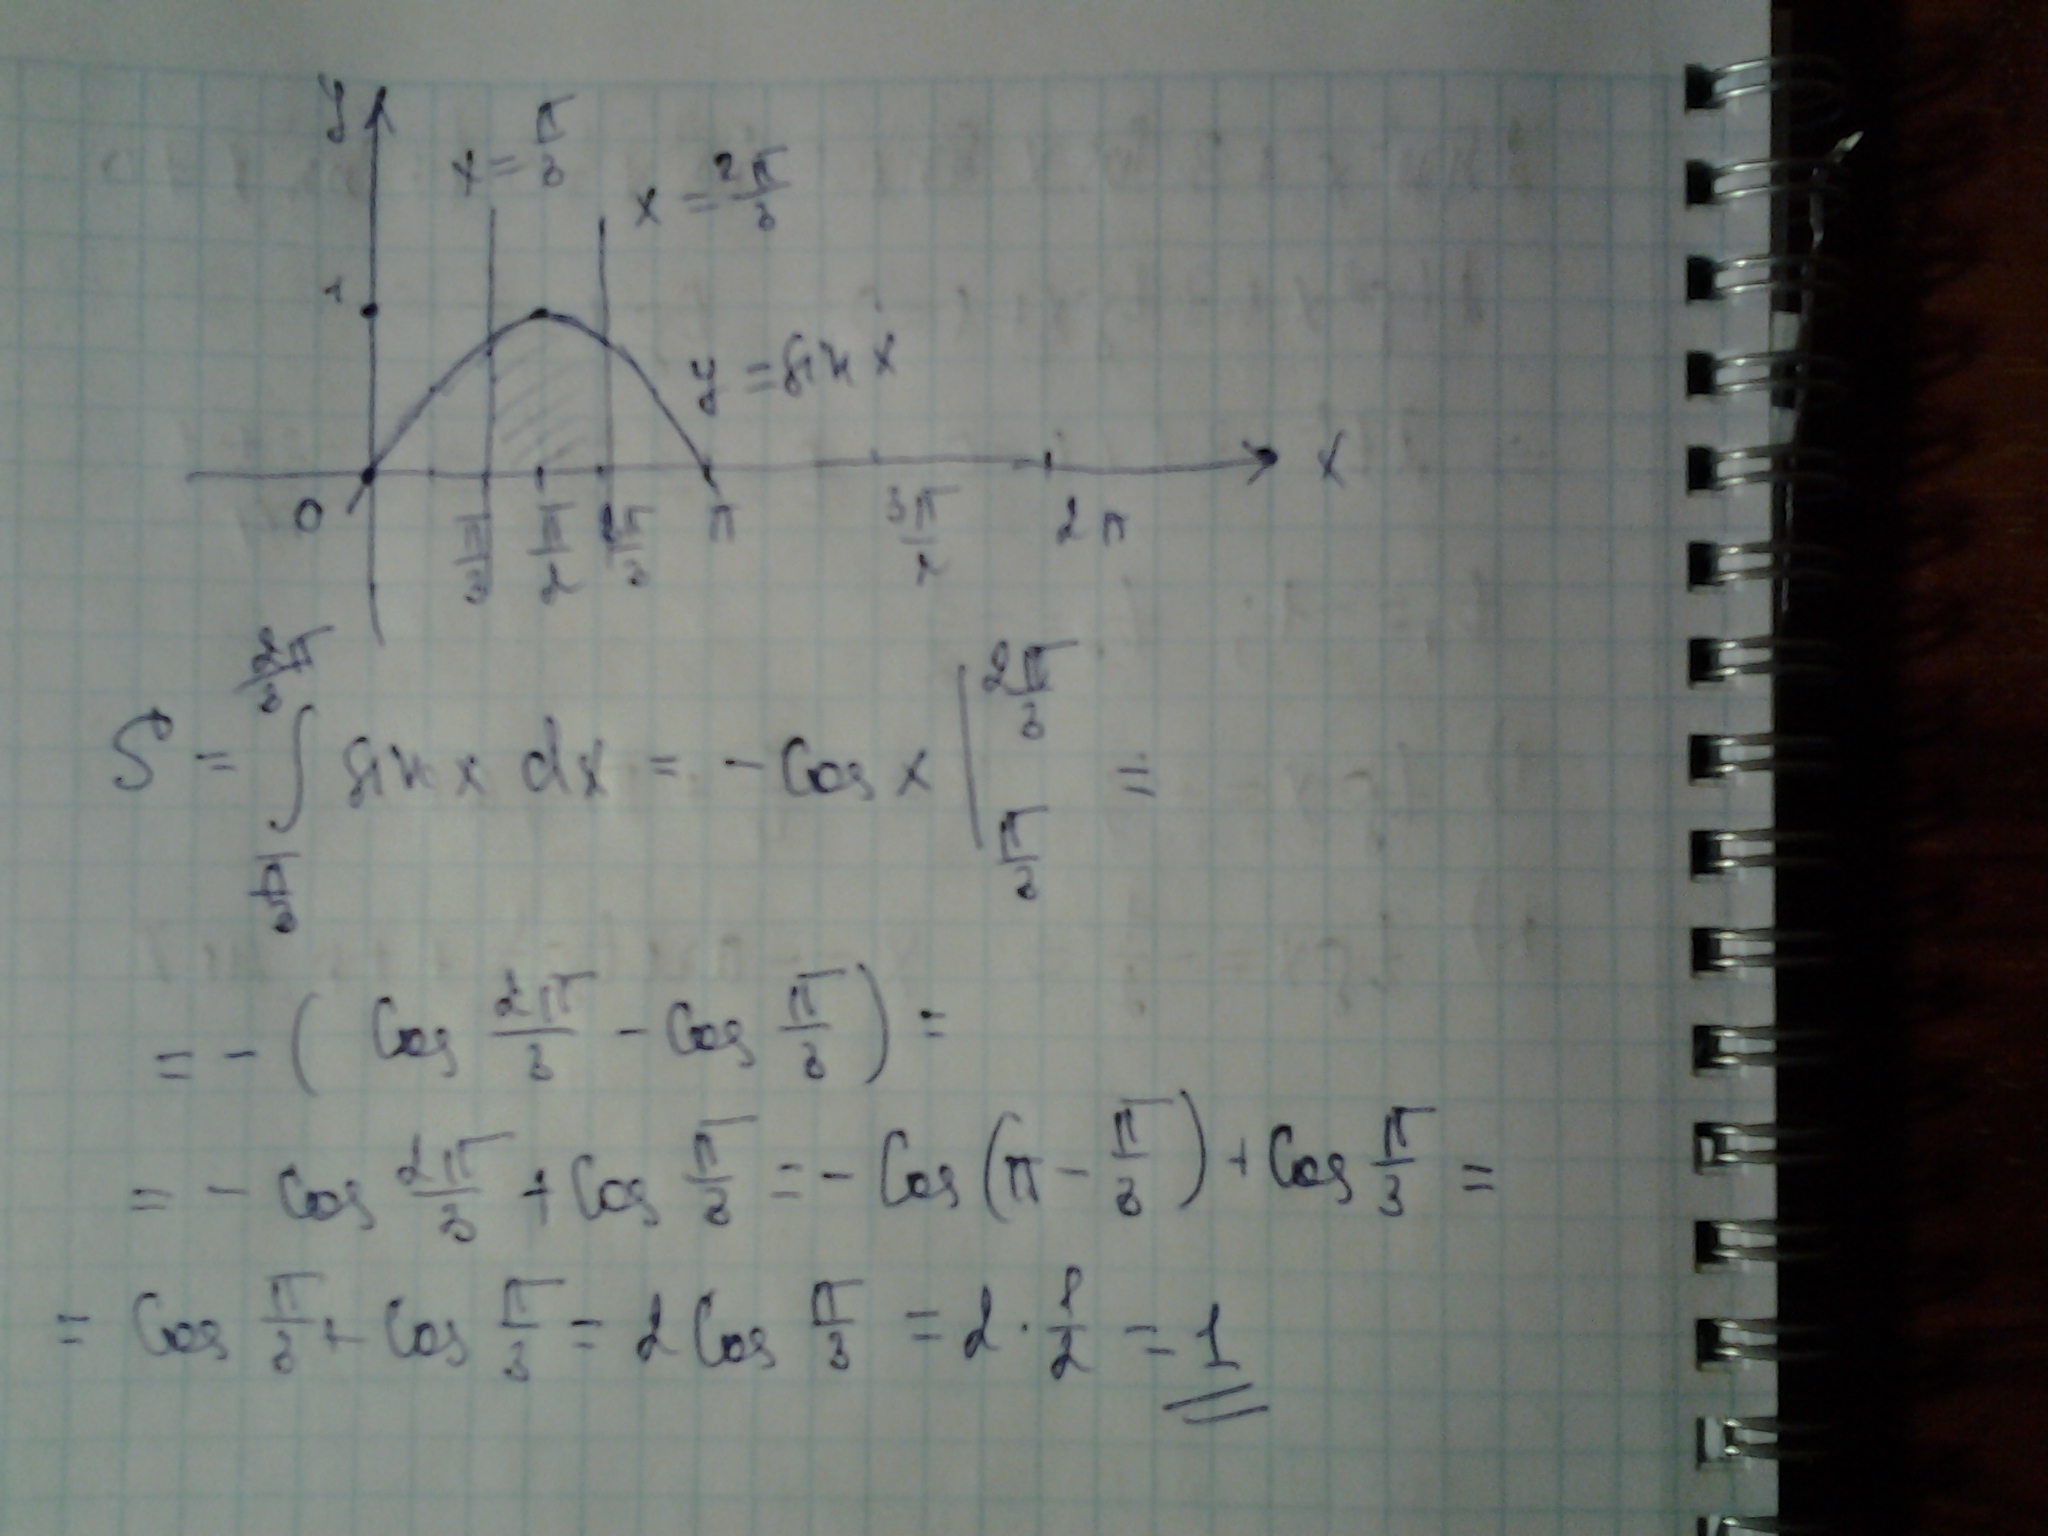 y
x = π/3
x = 2π/3
1
y = sin x
0 π/3 π/2 2π/3 π 3π/2 2π x
S = ∫_{π/3}^{2π/3} sin x dx = - cos x |_{π/3}^{2π/3} =
= - ( cos 2π/3 - cos π/3 ) =
= - cos 2π/3 + cos π/3 = - cos (π - π/3) + cos π/3 =
= cos π/3 + cos π/3 = 2 cos π/3 = 2 · 1/2 = 1